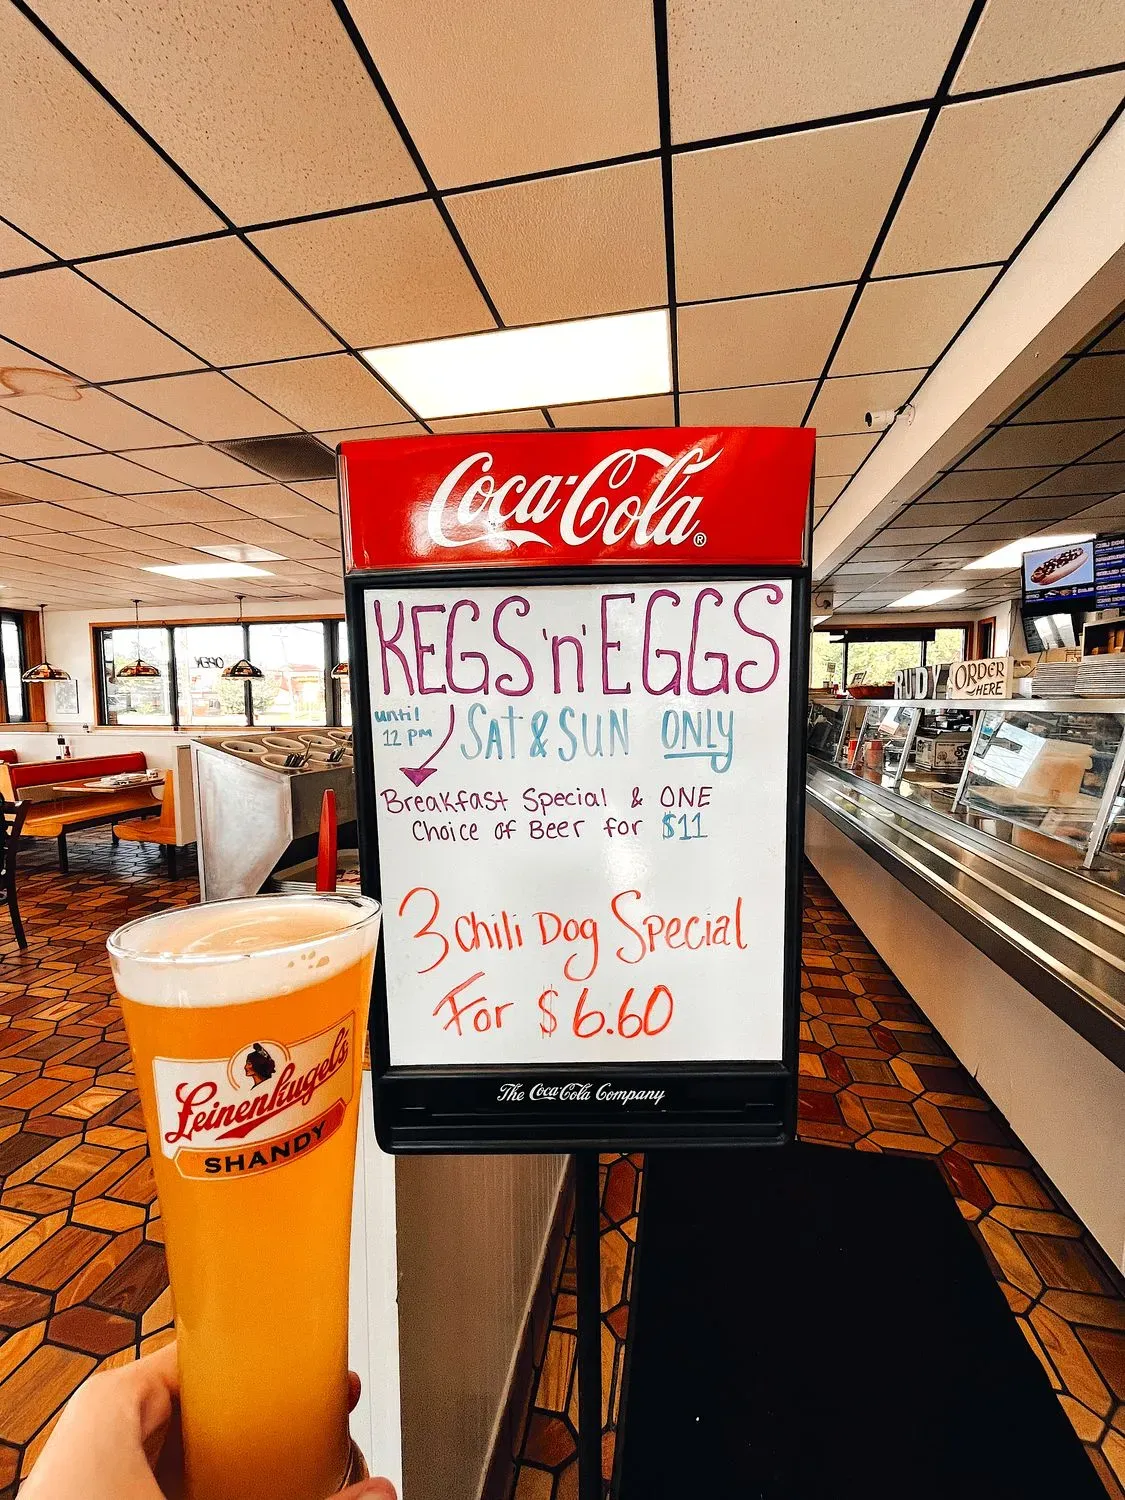 Coca-Cola®
KEGS 'n' EGGS
until
12 pm
SAT & SUN ONLY
Breakfast Special & ONE
Choice of Beer for $11
3 Chili Dog Special
For $6.60
The Coca-Cola Company
Leinenkugel's
SHANDY
OPEN
RUDY
ORDER
HERE
CHILI DOG